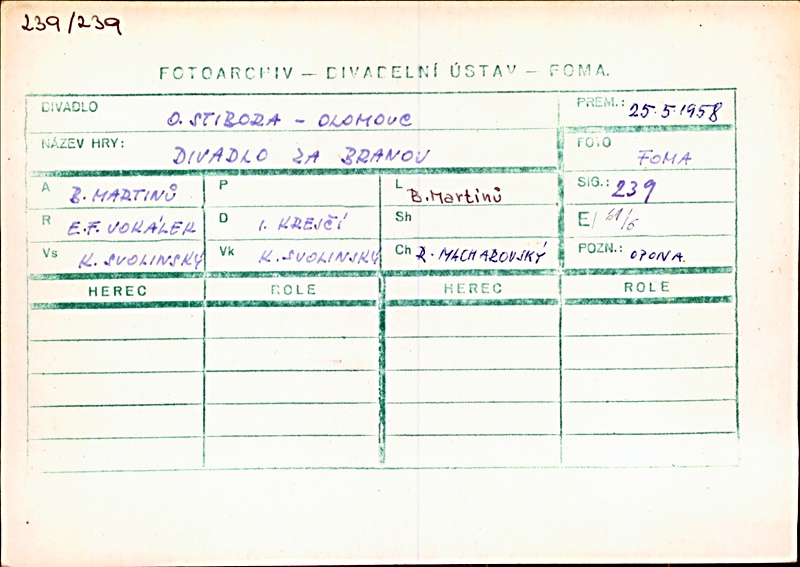 239/239
FOTOARCHIV – DIVADELNÍ ÚSTAV – FOMA.
DIVADLO O. STIBORA – OLOMOUC
PREM.: 25.5.1958
NÁZEV HRY: DIVADLO ZA BRANOU
FOTO FOMA
A B. MARTINŮ P L B. Martinů
SIG.: 239
R E.F. VOKÁLEK D I. KREJČÍ Sh
E/ 61/6
Vs K. SVOLINSKÝ Vk K. SVOLINSKÝ Ch R. MACHAROVSKÝ
POZN.: OPONA.
HEREC ROLE HEREC ROLE